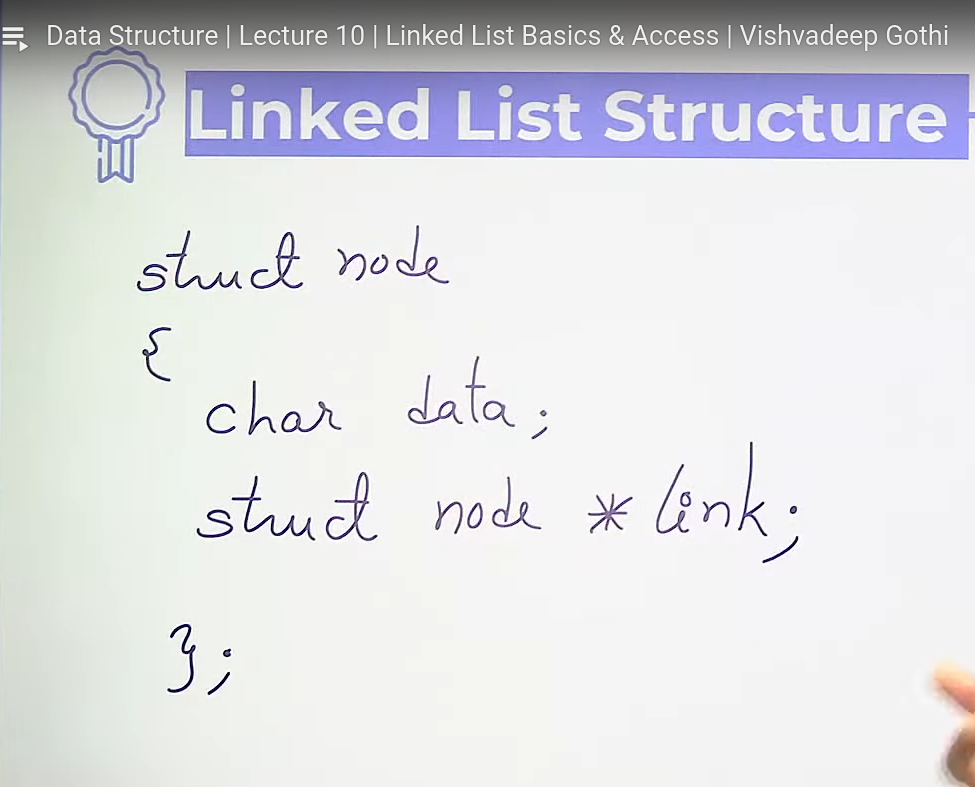 Data Structure | Lecture 10 | Linked List Basics & Access | Vishvadeep Gothi
Linked List Structure
struct node
{
char data;
struct node * link;
};